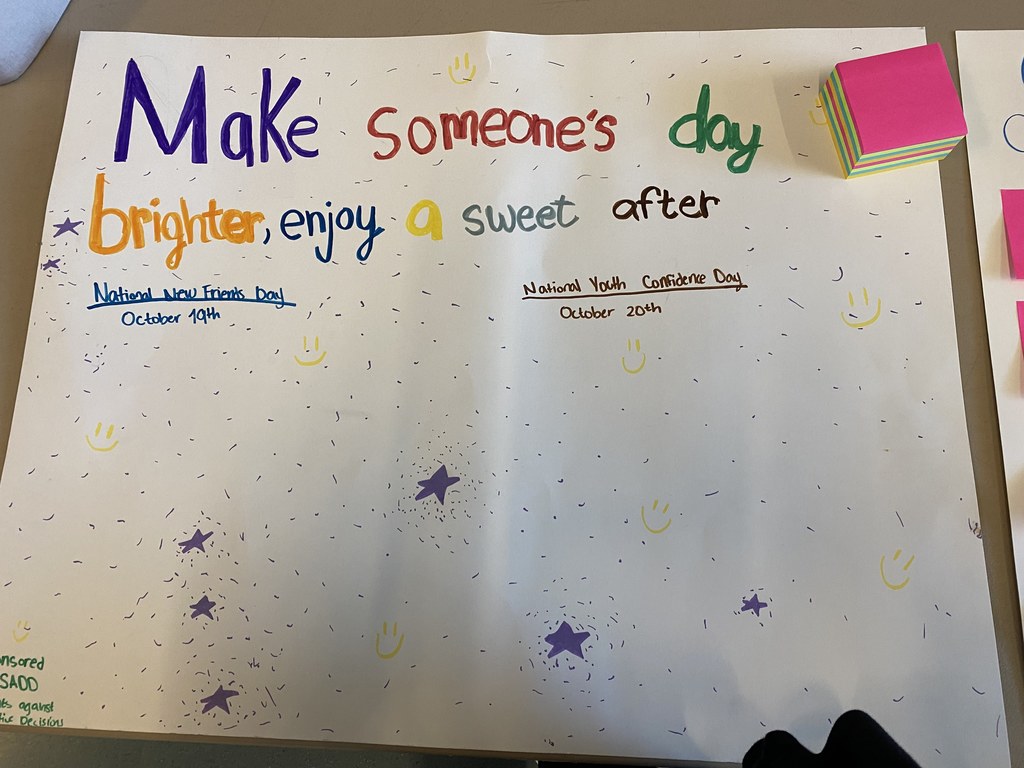 Make someone's day
brighter, enjoy a sweet after
National New Friends Day
October 19th
National Youth Confidence Day
October 20th
nsored
SADD
ts against
tive Decisions